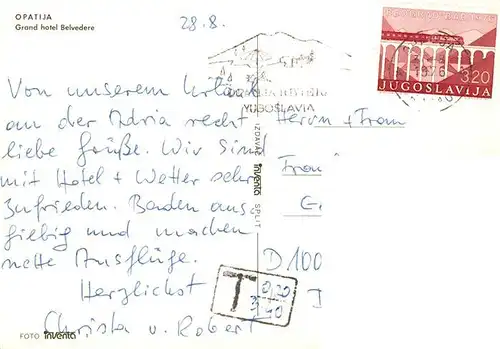 OPATIJA
Grand hotel Belvedere
28.8.
Von unserem Urlaub
an der Adria recht
liebe Grüße. Wir sind
mit Hotel + Wetter sehr
zufrieden. Baden aus-
giebig und machen
nette Ausflüge.
Herzlichst
Christa u. Robert
FOTO inventa
IZDAVAČ inventa SPLIT
YUGOSLAVIA
1976
3.20
JUGOSLAVIJA
Herrn + Frau
Frau
G
D 100
D
T
0,20